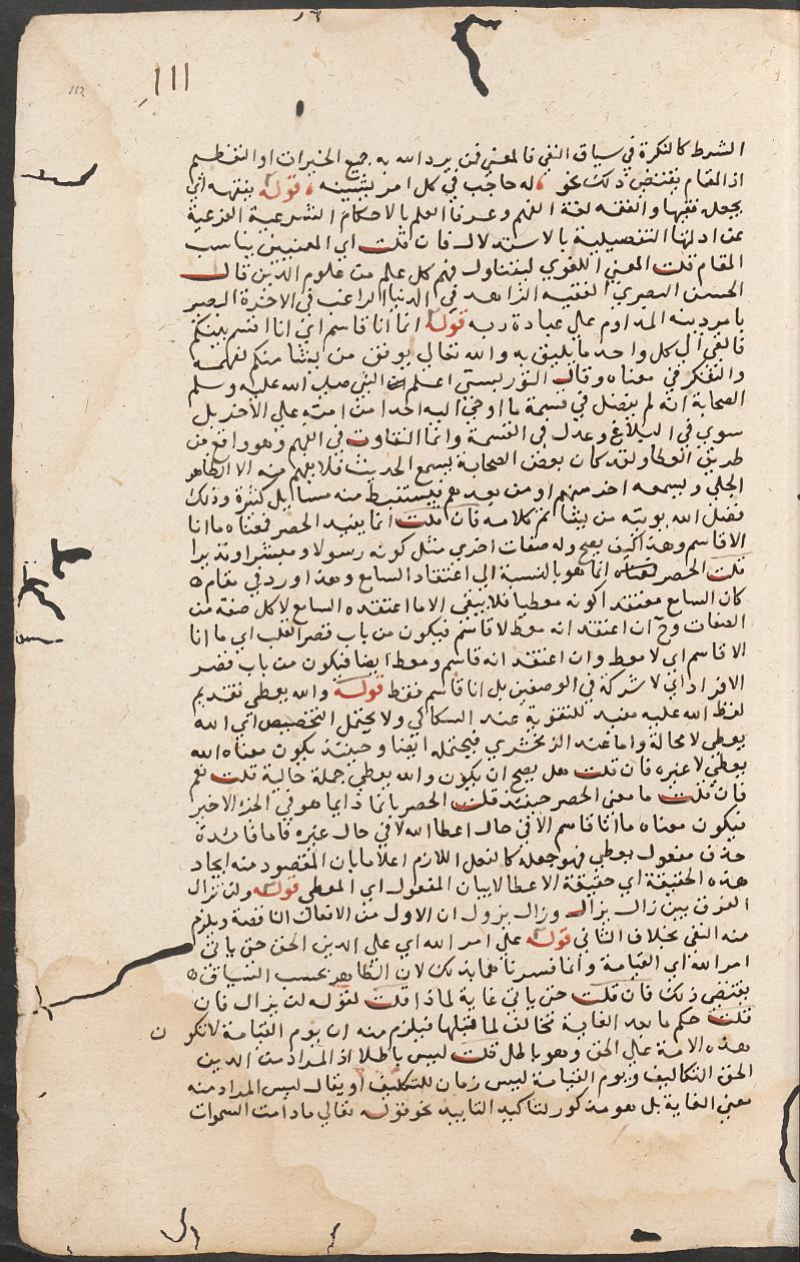 ١١١
الشرط كالنكرة في سياق النفي فالمعنى فمن يرد الله به جميع الخيرات او التعظيم
اذ المقام يقتضى ذلك نحو له حاجب في كل امر يشينه قوله يفقهه اي
يجعله فقيها والفقه لغة الفهم وعرفا العلم بالاحكام الشرعية الفرعية
عن ادلتها التفصيلية بالاستدلال فان قلت اي المعنيين يناسب
المقام قلت المعنى اللغوي ليتناول فهم كل علم من علوم الدين قال
الحسن البصري الفقيه الزاهد في الدنيا الراغب في الاخرة البصير
بامر دينه المداوم على عبادة ربه قوله انما انا قاسم اي انا اقسم بينكم
فالقي الى كل واحد ما يليق به والله تعالى يوفق من يشا منكم لفهمه
والتفكر في معناه وقال التوربشتي اعلم ان النبي صلى الله عليه وسلم
الصحابة انه لم يفضل في قسمة ما اوحي اليه احدا من امته على الآخر بل
سوى في البلاغ وعدل في القسمة وانما التفاوت في الفهم وهو واقع من
طريق العطا ولقد كان بعض الصحابة يسمع الحديث فلا يفهم منه الا الظاهر
الجلي ويسمعه اخر منهم او من بعدهم فيستنبط منه مسايل كثيرة وذلك
فضل الله يوتيه من يشا تم كلامه فان قلت انما يفيد الحصر فمعناه ما انا
الا قاسم وهذا كيف يصح وله صفات اخرى مثل كونه رسولا ومبشرا ونذيرا
قلت الحصر انما هو بالنسبة الى اعتقاد السامع وهذا ورد في مقام
كان السامع معتقدا كونه معطيا فلا ينفى الا ما اعتقده السامع لا كل صفة من
الصفات وح ان اعتقد انه معط لا قاسم فيكون من باب قصر القلب اي ما انا
الا قاسم اي لا معط وان اعتقد انه قاسم ومعط ايضا فيكون من باب قصر
الافراد اي لا شركة في الوصفين بل انا قاسم فقط قوله والله يعطي تقديم
لفظ الله عليه مفيد للتقوية عند السكاكي ولا يحتمل التخصيص اي الله
يعطي لا محالة واما عند الزمخشري فيحتمله ايضا وحينئذ يكون معناه الله
يعطي لا غيره فان قلت هل يصح ان يكون والله يعطي جملة حالية قلت نعم
فان قلت ما معنى الحصر حينئذ قلت الحصر بانما دايما هو في الجزء الاخير
فيكون معناه ما انا قاسم الا في حال اعطا الله لا في حال غيره فاما فائدة
حذف مفعول يعطي فهو جعله كالفعل اللازم اعلاما بان المقصود منه ايجاد
هذه الحقيقة اي حقيقة الاعطا لا بيان المفعول اي المعطى قوله ولن تزال
الفرق بين زال يزال وزال يزول ان الاول من الافعال الناقصة ويلزم
منه النفي بخلاف الثاني قوله على امر الله اي على الدين الحق حتى ياتي
امر الله اي القيامة وانما فسرناهما بذلك لان الظاهر بحسب السياق
يقتضى ذلك فان قلت حتى ياتي غاية لماذا قلت لقوله لن يزال فان
قلت حكم ما بعد الغاية مخالف لما قبلها فيلزم منه ان يوم القيامة لا تكون
هذه الامة على الحق وهو باطل قلت ليس باطلا اذ المراد من الدين
الحق التكاليف ويوم القيامة ليس زمان للتكليف او يقال ليس المراد منه
معنى الغاية بل هو مذكور لتاكيد التابيد نحو قوله تعالى ما دامت السموات